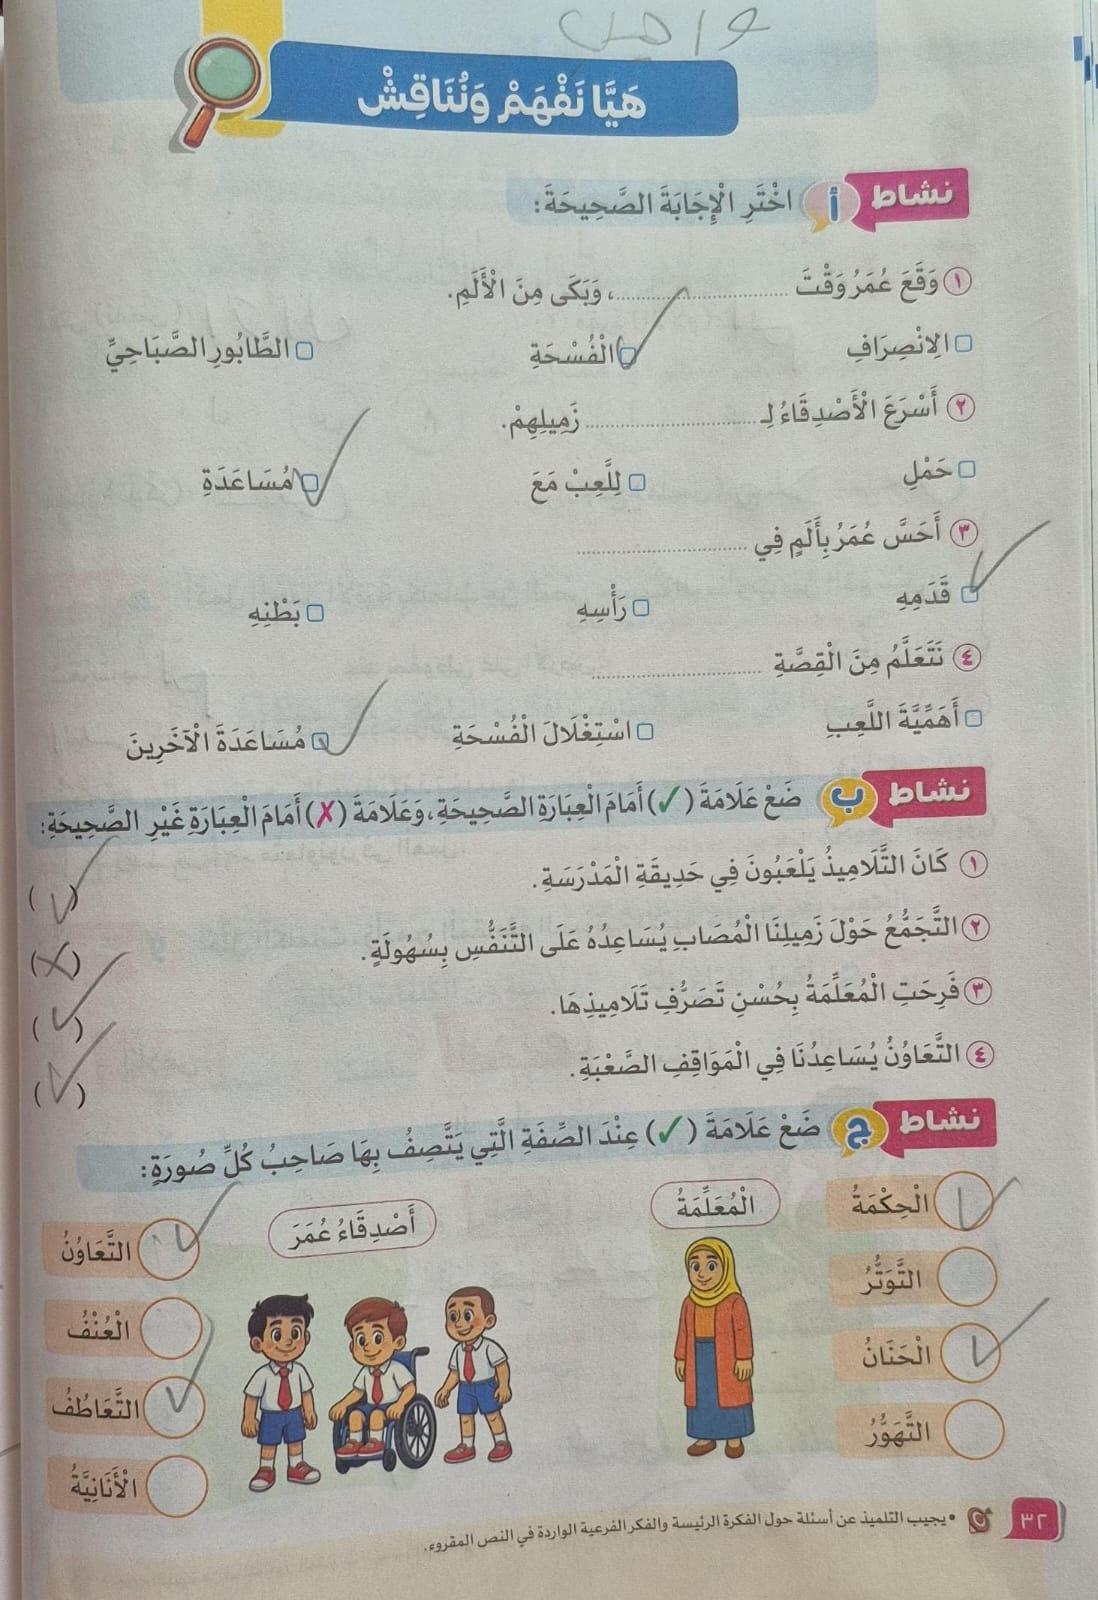 واجب
هَيَّا نَفْهَمْ وَنُنَاقِشْ
نشاط أ اخْتَرِ الْإِجَابَةَ الصَّحِيحَةَ:
١ وَقَعَ عُمَرُ وَقْتَ ....................، وَبَكَى مِنَ الْأَلَمِ.
الِانْصِرَافِ الْفُسْحَةِ الطَّابُورِ الصَّبَاحِيِّ
٢ أَسْرَعَ الْأَصْدِقَاءُ لِـ .................... زَمِيلِهِمْ.
حَمْلِ لِلَّعِبْ مَعَ مُسَاعَدَةِ
٣ أَحَسَّ عُمَرُ بِأَلَمٍ فِي ....................
قَدَمِهِ رَأْسِهِ بَطْنِهِ
٤ نَتَعَلَّمُ مِنَ الْقِصَّةِ ....................
أَهَمِّيَّةَ اللَّعِبِ اسْتِغْلَالَ الْفُسْحَةِ مُسَاعَدَةَ الْآخَرِينَ
نشاط ب ضَعْ عَلَامَةَ (✓) أَمَامَ الْعِبَارَةِ الصَّحِيحَةِ، وَعَلَامَةَ (✗) أَمَامَ الْعِبَارَةِ غَيْرِ الصَّحِيحَةِ:
١ كَانَ التَّلَامِيذُ يَلْعَبُونَ فِي حَدِيقَةِ الْمَدْرَسَةِ. (✓)
٢ التَّجَمُّعُ حَوْلَ زَمِيلِنَا الْمُصَابِ يُسَاعِدُهُ عَلَى التَّنَفُّسِ بِسُهُولَةٍ. (✗)
٣ فَرِحَتِ الْمُعَلِّمَةُ بِحُسْنِ تَصَرُّفِ تَلَامِيذِهَا. (✓)
٤ التَّعَاوُنُ يُسَاعِدُنَا فِي الْمَوَاقِفِ الصَّعْبَةِ. (✓)
نشاط ج ضَعْ عَلَامَةَ (✓) عِنْدَ الصِّفَةِ الَّتِي يَتَّصِفُ بِهَا صَاحِبُ كُلِّ صُورَةٍ:
الْمُعَلِّمَةُ
الْحِكْمَةُ
التَّوَتُّرُ
الْحَنَانُ
التَّهَوُّرُ
أَصْدِقَاءُ عُمَرَ
التَّعَاوُنُ
الْعُنْفُ
التَّعَاطُفُ
الْأَنَانِيَّةُ
٣٢ • يجيب التلميذ عن أسئلة حول الفكرة الرئيسة والفكر الفرعية الواردة في النص المقروء.